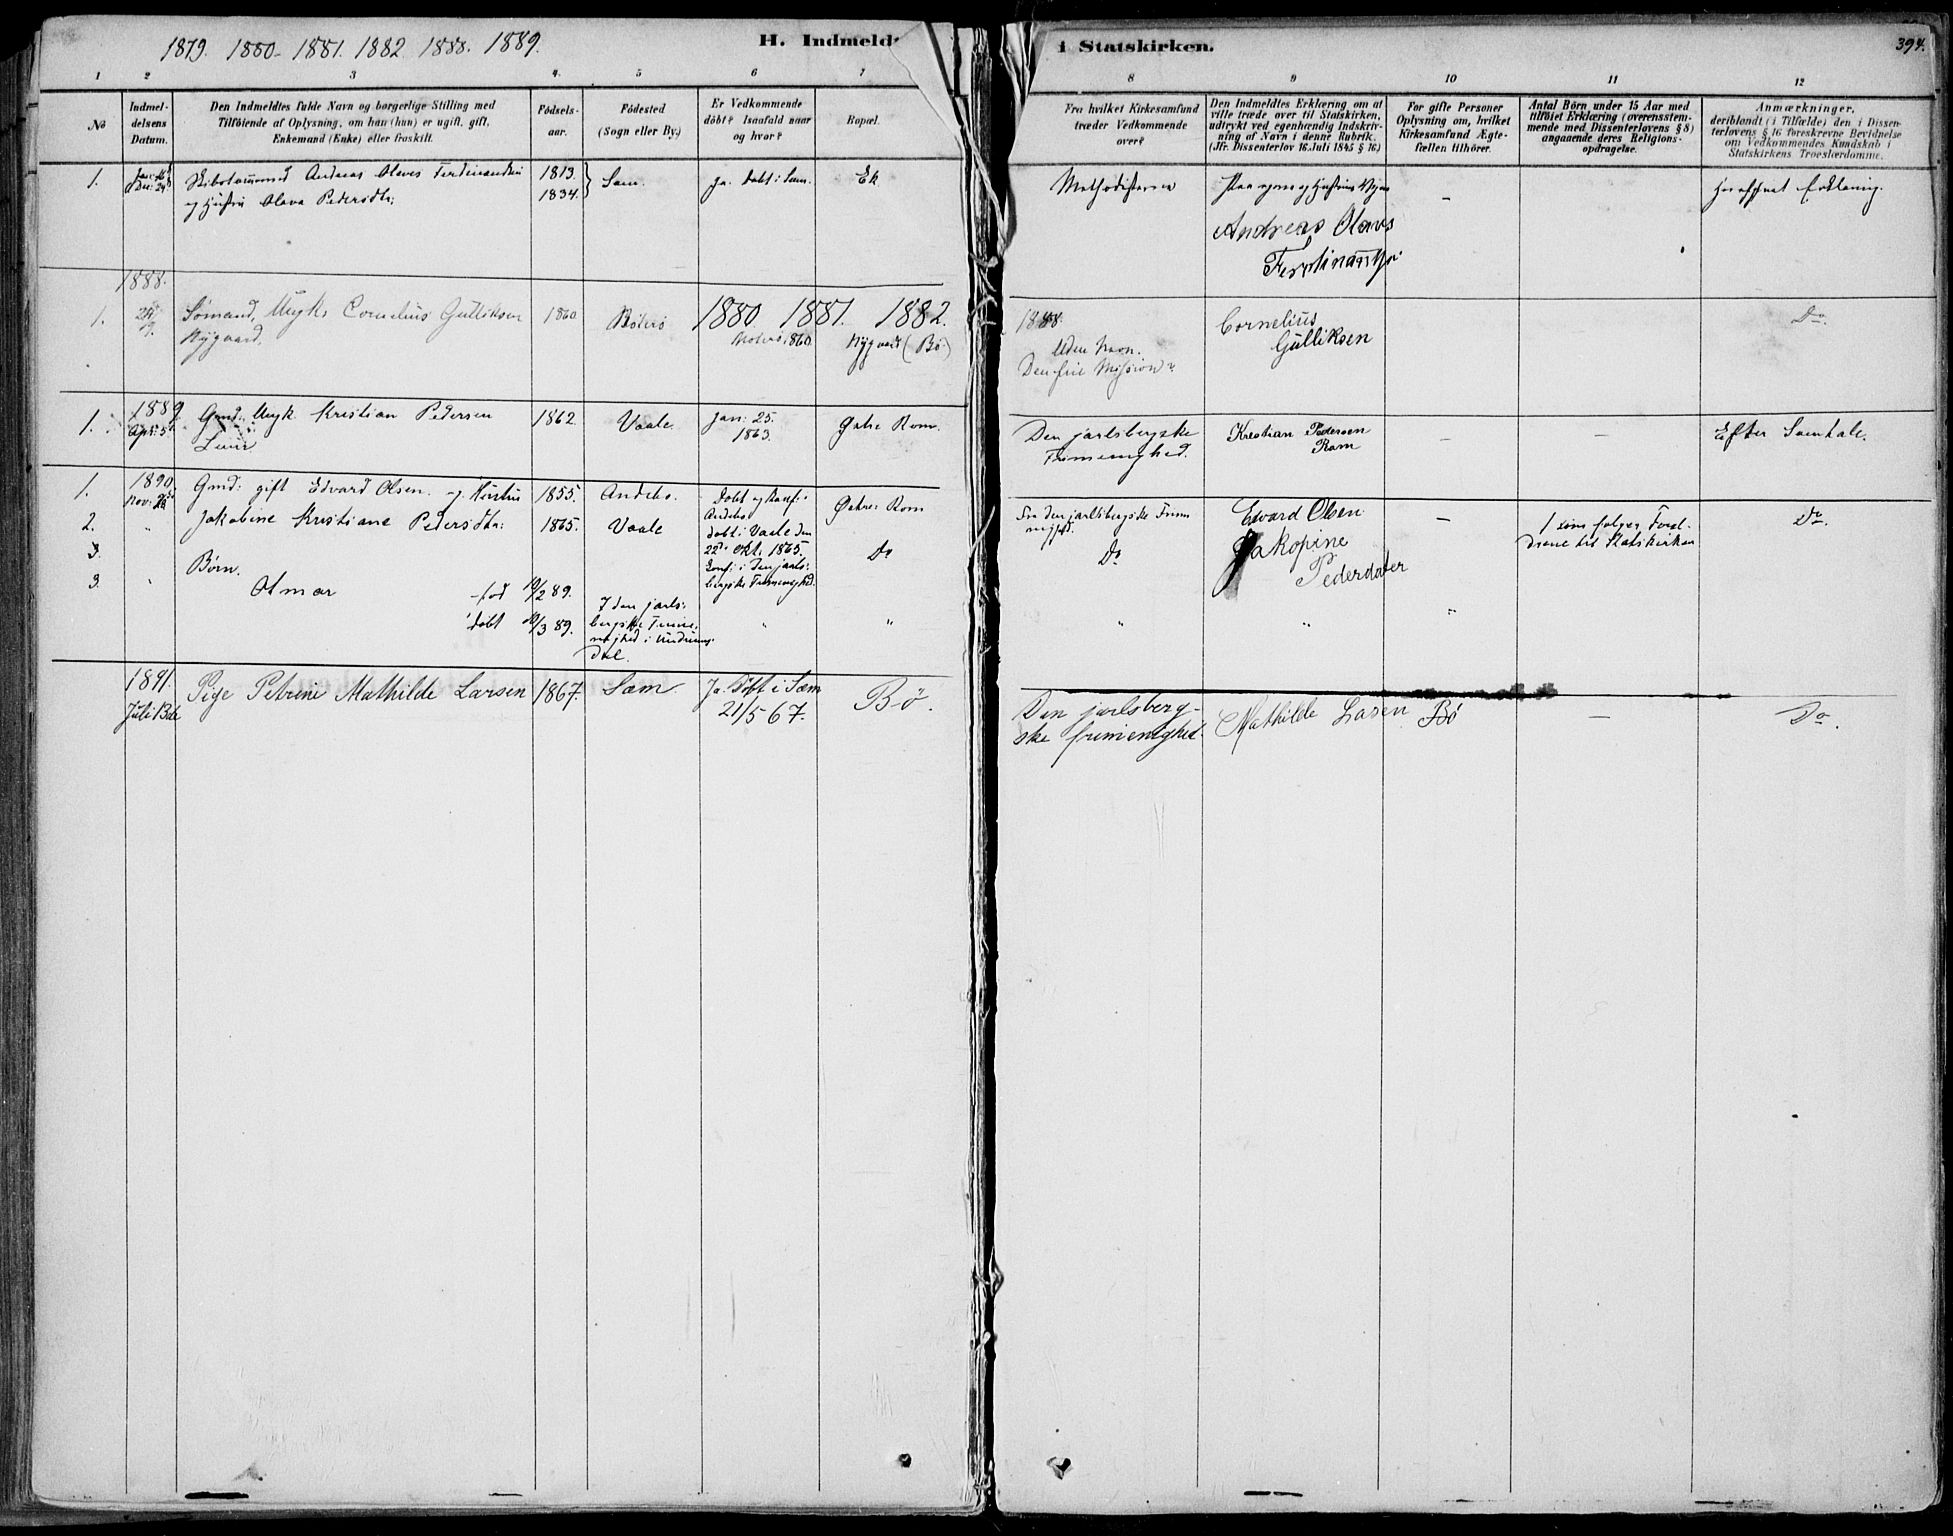 1879. 1880- 1881. 1882 1888. 1889.
H. Indmeldt
i Statskirken.
394.
1 2 3 4. 5 6 7
8 9 10 11 12
No
Indmel-
delsens
Datum.
Den Indmeldtes fulde Navn og borgerlige Stilling med
Tilföiende af Oplysning, om han (hun) er ugift, gift,
Enkemand (Enke) eller fraskilt.
Födsels-
aar.
Födested
(Sogn eller By.)
Er Vedkommende
döbt? Isaafald naar
og hvor?
Bopæl.
Fra hvilket Kirkesamfund
træder Vedkommende
over?
Den Indmeldtes Erklæring om at
ville træde over til Statskirken,
udtrykt ved egenhændig Indskriv-
ning af Navn i denne Rubrik.
(Jfr. Dissenterlov 16 Juli 1845 § 16)
For gifte Personer
Oplysning om, hvilket
Kirkesamfund Ægte-
fællen tilhörer.
Antal Börn under 15 Aar med
tilföiet Erklæring (overensstem-
mende med Dissenterlovens § 8)
angaaende deres Religions-
opdragelse.
Anmærkninger,
deriblandt (i Tilfælde) den i Dissen-
terlovens § 16 foreskrevne Bevidnelse
om Vedkommendes Kundskab i
Statskirkens Troeslærdomme.
1. Andreas Olaves Ferdinandsen 1813. Sem. Ja. Døbt i Sem. Ek
og Hustru Olava Pedersdtr: 1834.
Methodisterne
Andreas Olavs
Ferdinandsen
-
1888.
1. Sømand, Ungk. Cornelius Gulliksen 1860 1880 1881. 1882.
Nygaard. 1860. Nygaard (Bø)
1888.
Uden Navn.
Den frie Mission
Cornelius
Gulliksen
Do.
1889
1. Apr: 5 Gmd: Ungk. Kristian Pedersen 1862. Vaale. Jan: 25. Østre Rom.
1863.
Den jarlsbergske
Frimenighed.
Krestian Pedersen
Ram
- - Efter Samtale.
1. 1890 Gmd: gift Edvard Olsen. og Hustru 1855. Andebo. Døbt og konf: Østre: Rom
Nov: 26 Andebo
2. " Jakobine Kristiane Pedersdtr: 1865. Vaale døbt i Vaale den
22de Okt: 1865.
3. Do
Konf: i den jarls-
bergske Frimenighed.
Børn.
3. " Otmar - fød 19/2 89.
døbt 10/3 89.
I den jarls-
bergske Frime-
nighed i Undrums-
dal.
" "
Fra den jarlsbergske Frime
nighed.
Do
Edvard Olsen
Jakopine
Pederdater
-
1 som følger Foræl-
drene til Statskirken
Do.
" " "
1891.
Juli 13de Pige Petrine Mathilde Larsen 1867. Sæm. Ja. Døbt i Sæm Bø.
21/5 67.
Den jarlsberg-
ske frimenighed.
Mathilde Lasen Bø - Do.